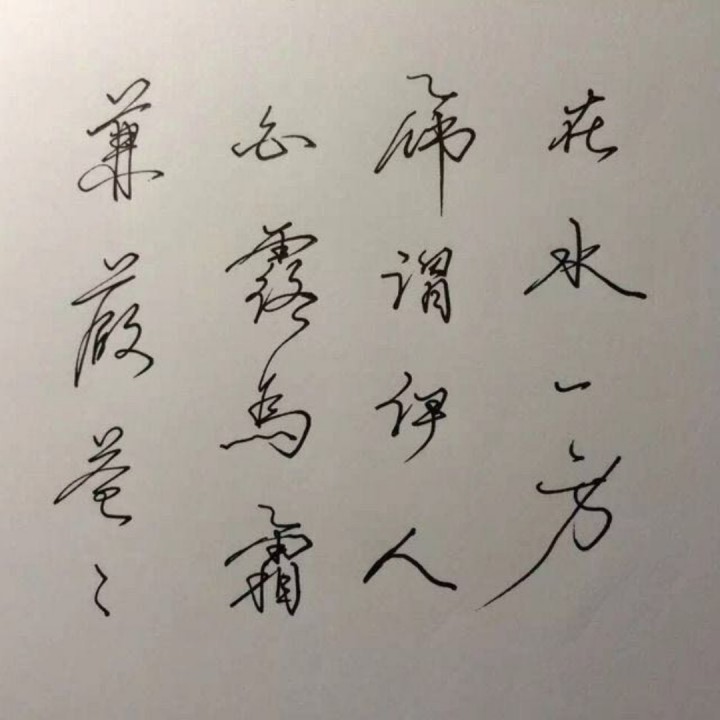 蒹葭苍〻
白露為霜
所谓伊人
在水一方